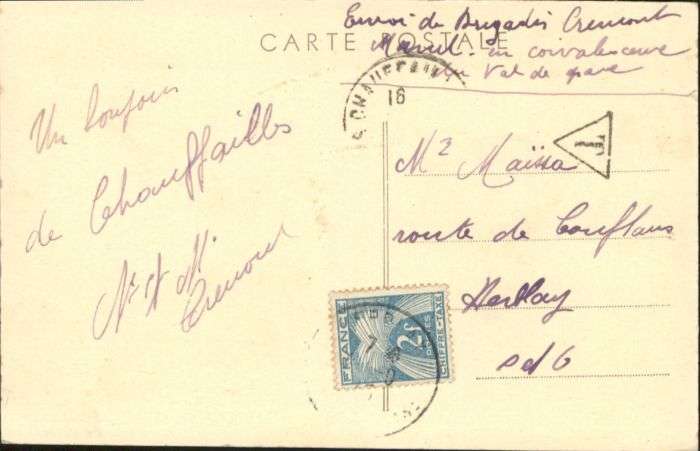 CARTE POSTALE
Envoi de Brigadier Cremont
Marcel en convalescence
au Val de grave
CHAUFFAILLES
16
T
Un bonjour
de Chauffailles
Mr et Me
Cremont
Mr Maïssa
route de Conflans
Herblay
S et O
FRANCE
2f
POSTES
CHIFFRE-TAXE